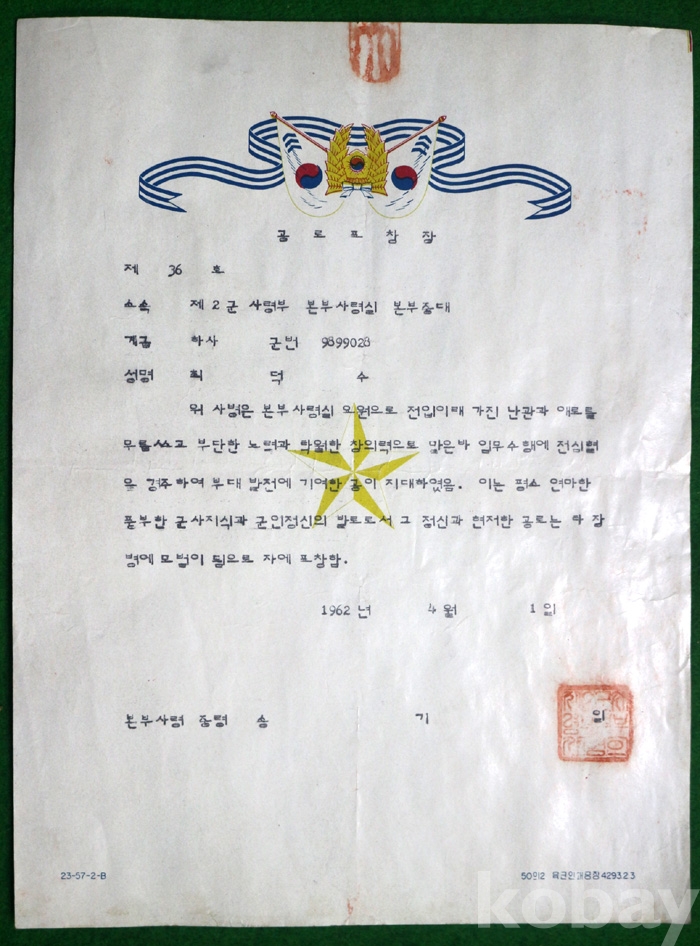 공 로 표 창 장
제 36 호
소속 제2군 사령부 본부사령실 본부중대
계급 하사 군번 9899028
성명 최 덕 수
위 사병은 본부사령실 요원으로 전입이래 가진 난관과 애로를
무릅쓰고 부단한 노력과 탁월한 창의력으로 맡은바 임무수행에 전심혈
을 경주하여 부대 발전에 기여한 공이 지대하였음. 이는 평소 연마한
풍부한 군사지식과 군인정신의 발로로서 그 정신과 현저한 공로는 타 장
병에 모범이 됨으로 자에 표창함.
1962년 4월 1일
본부사령 중령 송 기 일
23-57-2-B
4293.2.3
kobay